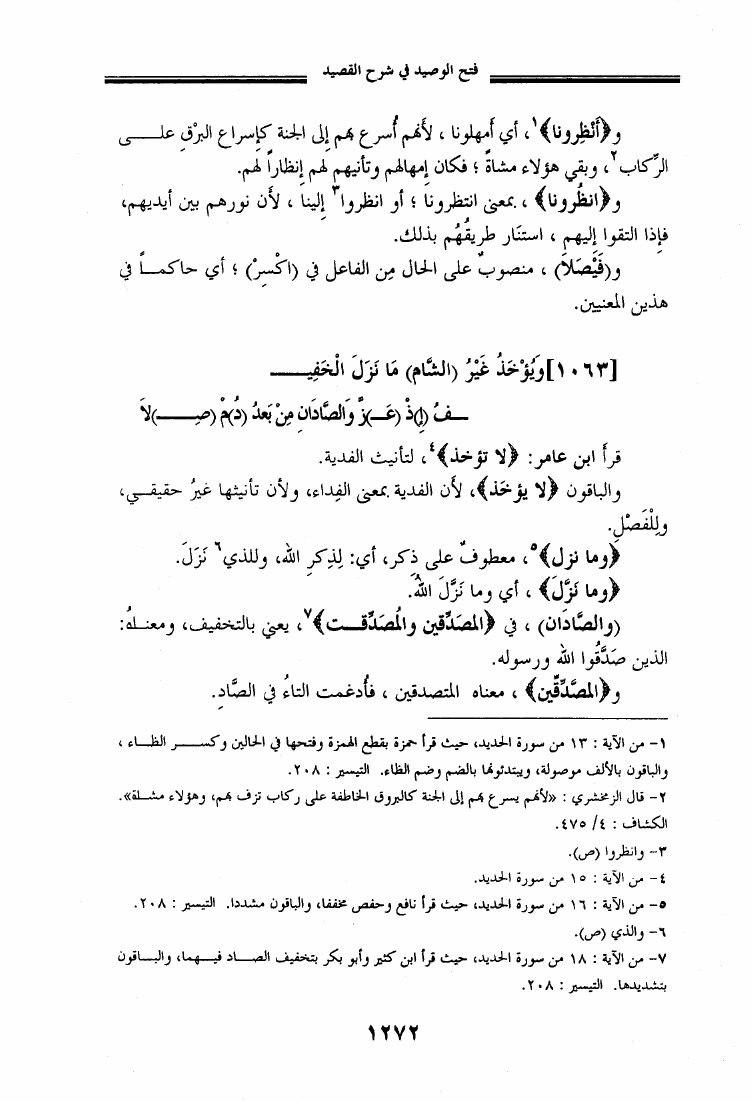 فتح الوصيد في شرح القصيد
و﴿أَنْظِرونا﴾١، أي أمهلونا ، لأنهم أُسرع بهم إلى الجنة كإسراع البرْق علـــى
الرِّكاب٢، وبقي هؤلاء مشاةً ؛ فكان إمهالهم وتأنيهم لهم إنظاراً لهم.
و﴿انظُرونا﴾ ، بمعنى انتظرونا ؛ أو انظروا٣ إلينا ، لأن نورهم بين أيديهم،
فإذا التقوا إليهم ، استنَار طريقُهُم بذلك.
و(فَيْصَلاَ) ، منصوبٌ على الحال مِن الفاعل في (اكْسِرْ) ؛ أي حاكمــاً في
هذين المعنيين.
[١٠٦٣]وَيُؤْخَذُ غَيْرُ (الشَّامِ) مَا نَزَلَ الْخَفِيـــــ
ـــفُ (إِ)ذْ (عَــ)زَّ وَالصَّادَانِ مِنْ بَعدُ (دُ)مْ (صِـــــ)لاَ
قرأ ابن عامر: ﴿لا تؤخذ﴾٤، لتأنيث الفدية.
والباقون ﴿لا يؤخَذ﴾، لأن الفدية بمعنى الفِداء، ولأن تأنيثها غيرُ حقيقـي،
وللْفَصْلِ.
﴿وما نزل﴾٥، معطوفٌ على ذِكر، أي: لِذِكرِ الله، وللذي٦ نَزَلَ.
﴿وما نَزَّلَ﴾ ، أي وما نَزَّلَ اللهُ.
(والصَّادَان) ، في ﴿المصَدِّقين والمُصَدِّقـــت﴾٧، يعني بالتخفيف، ومعنـاهُ:
الذين صَدَّقُوا الله ورسوله.
و﴿المصَّدِّقين﴾ ، معناه المتصدقين ، فأُدغمت التاءُ في الصَّادِ.
١- من الآية : ١٣ من سورة الحديد، حيث قرأ حمزة بقطع الهمزة وفتحها في الحالين وكســـر الظـاء ،
والباقون بالألف موصولة، ويبتدئونها بالضم وضم الظاء. التيسير : ٢٠٨.
٢- قال الزمخشري : «لأنهم يسرع بهم إلى الجنة كالبروق الخاطفة على ركاب تزف بهم، وهؤلاء مشـاة».
الكشاف : ٤/ ٤٧٥.
٣- وانظروا (ص).
٤- من الآية : ١٥ من سورة الحديد.
٥- من الآية : ١٦ من سورة الحديد، حيث قرأ نافع وحفص مخففا، والباقون مشددا. التيسير : ٢٠٨.
٦- والذي (ص).
٧- من الآية : ١٨ من سورة الحديد، حيث قرأ ابن كثير وأبو بكر بتخفيف الصـــاد فيـهما، والبـاقون
بتشديدها. التيسير : ٢٠٨.
١٢٧٢